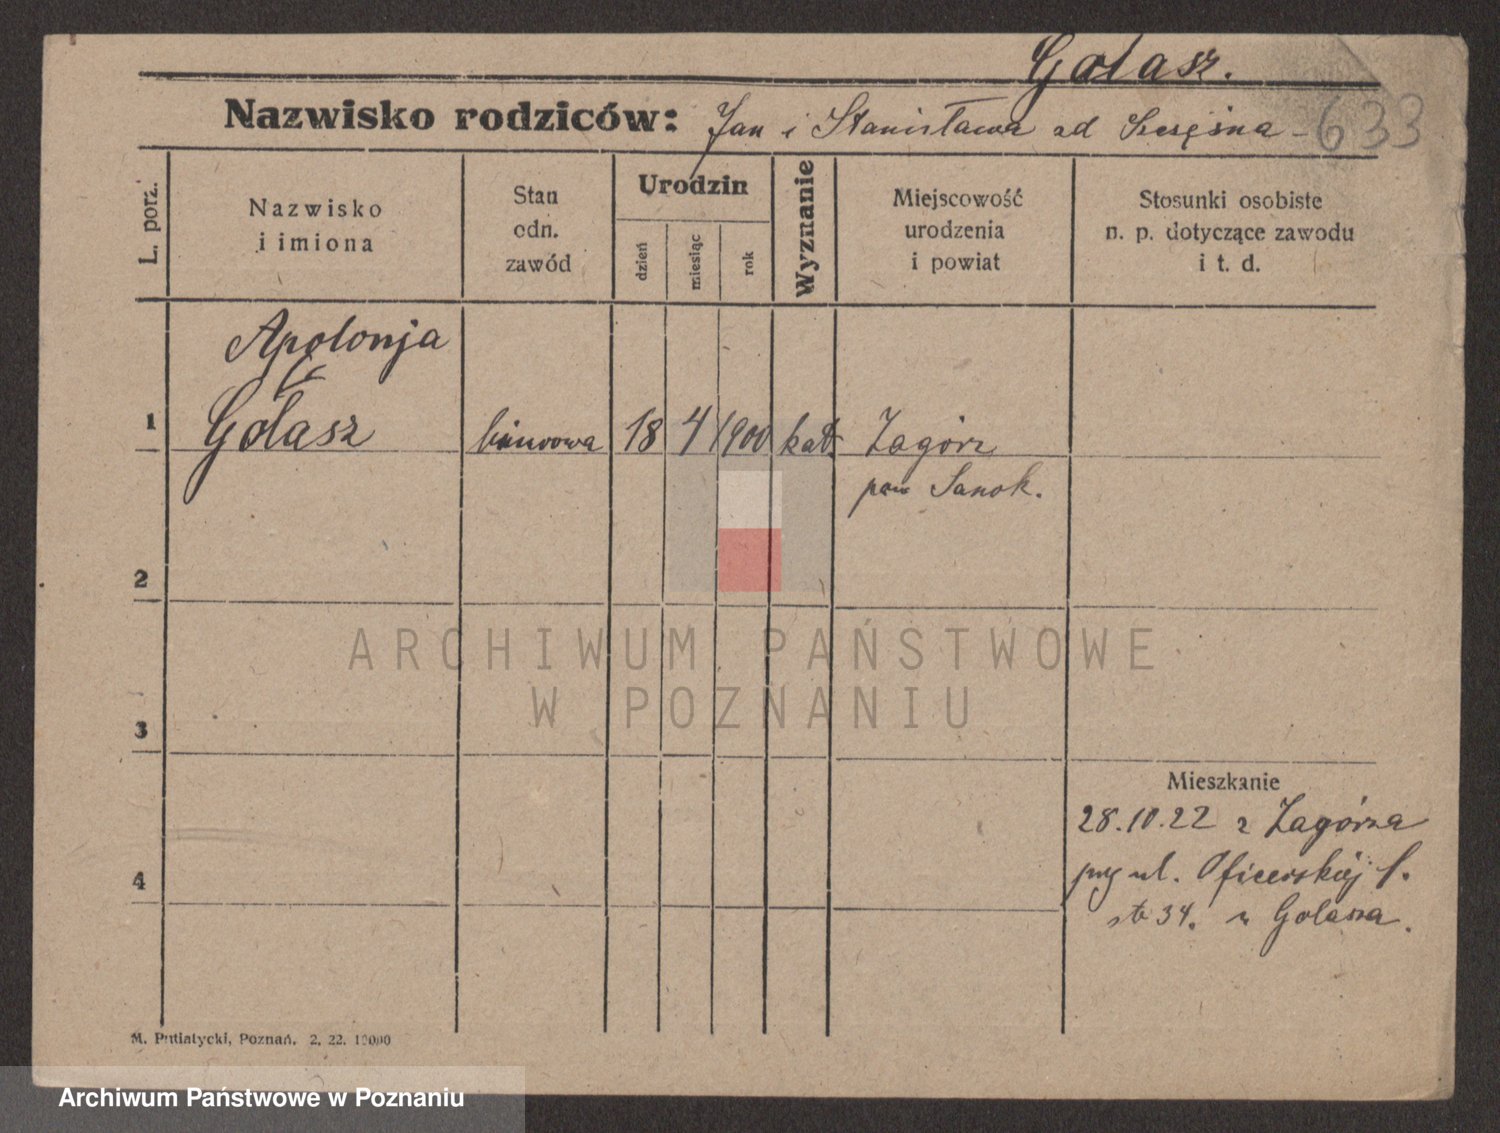 Gołasz.
Nazwisko rodziców: Jan i Stanisława od Szczęsna - 633
L. porz.
Nazwisko
i imiona
Stan
odn.
zawód
Urodzin
dzień
miesiąc
rok
Wyznanie
Miejscowość
urodzenia
i powiat
Stosunki osobiste
n. p. dotyczące zawodu
i t. d.
Apolonja
1 Gołasz biurowa 18 4 1900 kat. Zagórz
pow Sanok.
2
ARCHIWUM PAŃSTWOWE
W POZNANIU
3
Mieszkanie
28.10.22 z Zagórza
przy ul. Oficerskiej
4
34. u Gołasza.
M. Putiatycki, Poznań. 2. 22. 10000
Archiwum Państwowe w Poznaniu